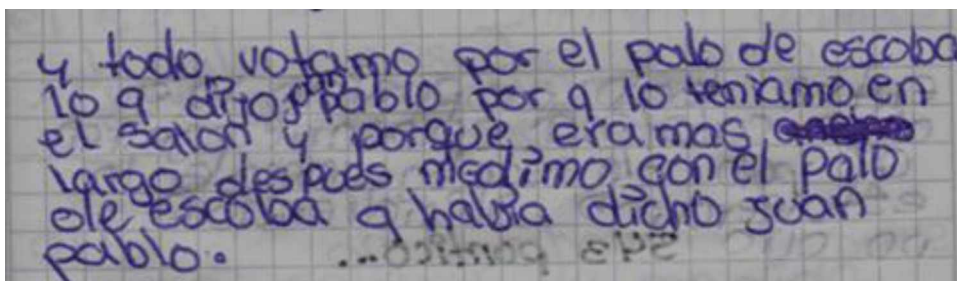 y todo votamo por el palo de escoba
lo q dijo juan pablo por q lo teniamo en
el salon y porque era mas
largo despues medimo con el palo
de escoba q habia dicho juan
pablo.